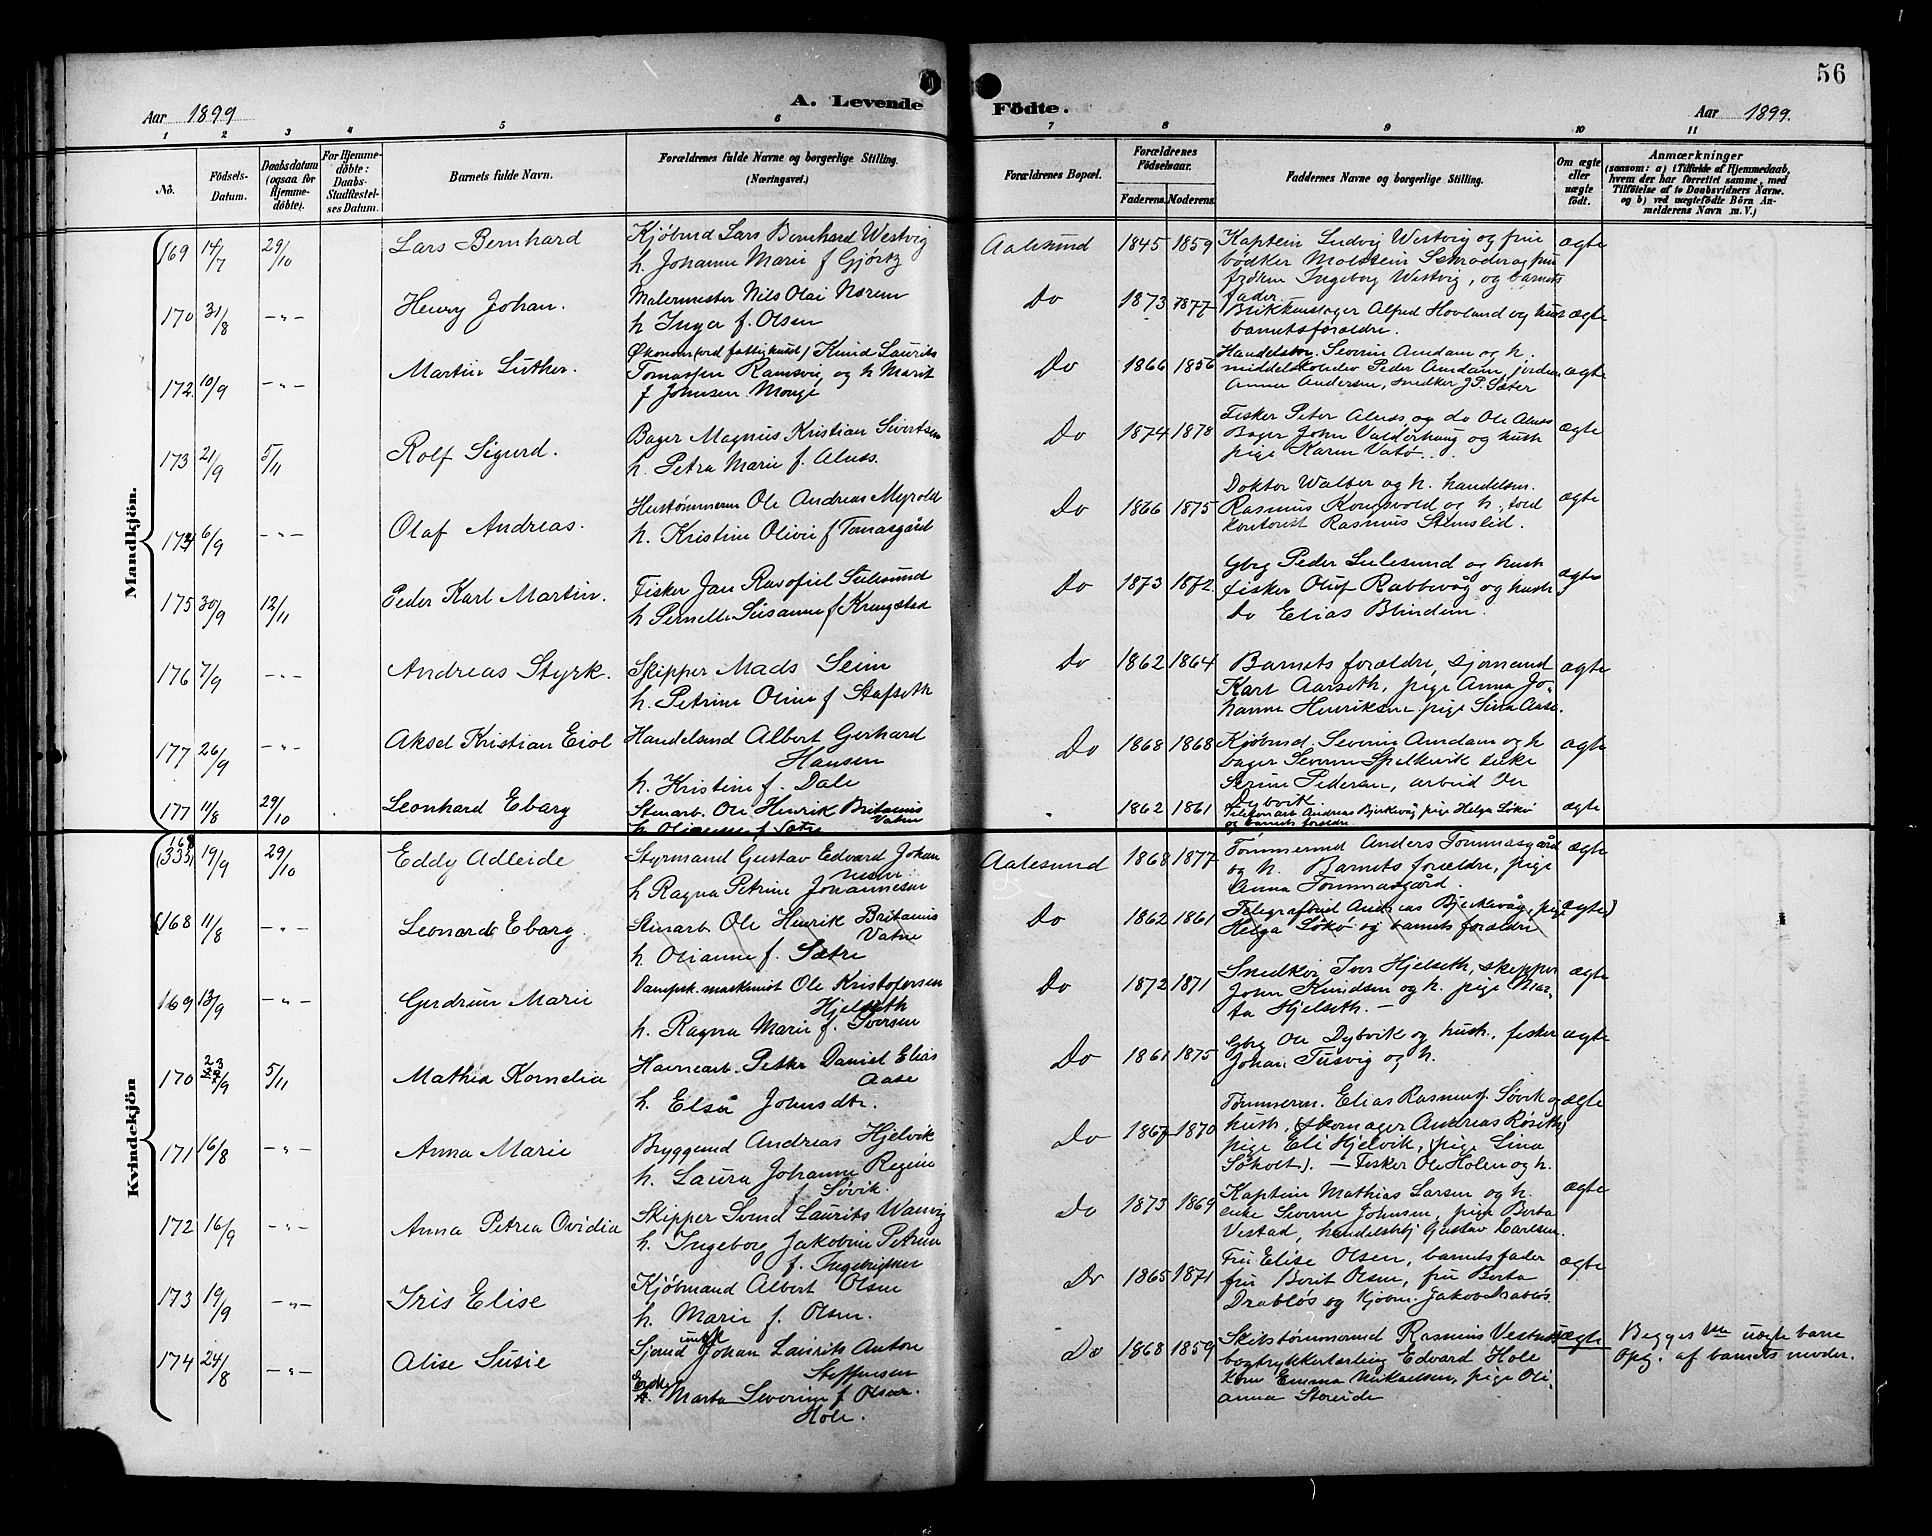 56
A. Levende Födte.
Aar 1899
Aar 1899.
1 2 3 4 5 6 7 8 9 10 11
No.
Födsels-Datum.
Daabsdatum (ogsaa for Hjemme-döbte).
For Hjemme-döbte: Daabs-Stadfæstel-ses Datum.
Barnets fulde Navn.
Forældrenes fulde Navne og borgerlige Stilling. (Næringsvei.)
Forældrenes Bopæl.
Forældrenes Födselsaar.
Faderens. Moderens.
Faddernes Navne og borgerlige Stilling.
Om ægte eller uægte födt.
Anmærkninger
(saasom: a) i Tilfælde af Hjemmedaab, hvem der har forrettet samme, med Tilföielse af to Daabsvidners Navne. og b) ved uægtefödte Börn An-melderens Navn m. V.)
Mandkjön.
169 14/7 29/10 Lars Bernhard
Kjøbmd Lars Bernhard Westvig
h. Johanne Marie f Gjørtz
Aalesund 1845 1859
Kaptein Ludvig Westvig og frue
bødker Molstein Schrøder og frue
frøken Ingeborg Westvig, og barnets
fader.
ægte
170 31/8 -"- Henry Johan.
Malermester Nils Olai Norem
h Inger f. Olsen
Do 1873 1877
Blikkenslager Alfred Hovland og hust
barnets forældre.
ægte
172 10/9 -"- Martin Luther.
Økonom (ved fattighuset) Knud Laurits
Tomassen Ramsvig og h Marit
f Johnsen Monge
Do 1866 1856
Handelsbor. Severin Amdam og h.
middelskoleelev Peder Amdam, jordm.
Anna Andersen, snedker J.P. Sæter
ægte
173 21/9 5/11 Rolf Sigurd.
Bager Magnus Kristian Sivertsen
h. Petra Marie f. Alnes.
Do 1874 1878
Fisker Peter Alnes og do Ole Alnes
Bager John Valderhaug og hust
pige Karen Vatø
ægte
174 6/9 -"- Olaf Andreas.
Hustømmerm Ole Andreas Myrold
h. Kristine Olivie f Tomasgård
Do 1866 1875
Doktor Walter og h. handelsm.
Rasmus Kongsvold og h., told
kontorist Rasmus Stenslid.
ægte
175 30/9 12/11 Peder Karl Martin.
Fisker Jan Ravofiel Sulesund
h Pernelle Susanne f Kringstad
Do 1873 1872
Gbrg Peder Sulesund og hust
fisker Oluf Rabbevåg og hust
Do Elias Blindem.
ægte
176 7/9 -"- Andreas Styrk.
Skipper Mads Seim
h. Petrine Oline f Stafseth
Do 1862 1864
Barnets forældre, sjømand
Karl Aarseth, pige Anna Jo-
hanne Henriksen pige Sina Aase
ægte
177 26/9 -"- Aksel Kristian Eiol
Handelsmd Albert Gerhard
Hansen
h. Kristine f. Dale
Do 1868 1868
Kjøbmd. Severin Amdam og h
bager Severin Spelkevik enke
Serine Pedersen, arbeid Ole
Dybvik
ægte
177 11/8 29/10 Leonhard Ebarg
Stenarb. Ole Henrik Britanis
Vatne
h. Olianne f Sætre
1862 1861
Telefonarb Andreas Bjerkevåg, pige Helga Løkø
og barnets forældre
ægte
Kvindekjön
168
(333) 19/9 29/10 Eddy Adleide
Styrmand Gustav Edvard Johan
nesen
h Ragna Petrine Johannesen
Aalesund 1868 1877
Tømmermd Anders Tommasgård
og h. Barnets forældre, pige
Anna Tommasgård.
ægte
(168 11/8 -"- Leonard Ebarg.
Stenarb Ole Henrik Britanis
Vatne
h. Olianne f. Sætre
Do 1862 1861
Telegrafbud Andreas Bjerkevåg, pige
Helga Løkø og barnets forældre
ægte)
169 13/9 -"- Gudrun Marie
Dampsk. maskinist Ole Kristofersen
Hjelseth
h. Ragna Marie f. Iversen
Do 1872 1871
Snedker Iver Hjelseth, skipper
John Knudsen og h. pige Mar-
ta Hjelseth. —
ægte
170 23/9 5/11 Mathea Kornelia
Havnearb. Petter Daniel Elias
Aase
h. Elsa Johnsdtr.
Do 1861 1875
Gbrg Ole Dybvik og hust., fisker
Johan Tusvig og h.
ægte
171 16/8 -"- Anna Marie
Bryggemd Andreas Hjelvik
h. Laura Johanne Regine
f Søvik.
Do 1867 1870
Tømmerm. Elias Rasmus. Søvik og
hust, (skomager Andreas Røseth)
pige Eli Hjelvik, (pige Lina
Søholt). — Fisker Ole Holen og h.
ægte
172 16/9 -"- Anna Petrea Ovidia
Skipper Svend Laurits Wanvig
h. Ingeborg Jakobine Petrine
f. Ingebrigtsen
Do 1873 1869
Kaptein Mathias Larsen og h.
enke Severine Johnsen, pige Berta
Vestad, handelsbtj Gustav Carlsen.
ægte
173 19/9 -"- Iris Elise
Kjøbmand Albert Olsen
h. Marie f. Olsen.
Do 1865 1871
Fru Elise Olsen, barnets fader
fru Berit Olsen, fru Berta
Drabløs og kjøbm. Jakob Drabløs.
ægte
174 24/8 -"- Alise Susie
ungk
Sjømd Johan Laurits Anton
Steffensen
Enke
h. Marta Severine f Olsen
Hole.
Do 1868 1859
Skibstømmermd Rasmus Vestnes
bogtrykkerlærling Edvard Hole
kone Emma Mikaelsen, pige Oli-
anna Storeide
uægte
Begges uægte barn
Opg. af barnets moder.